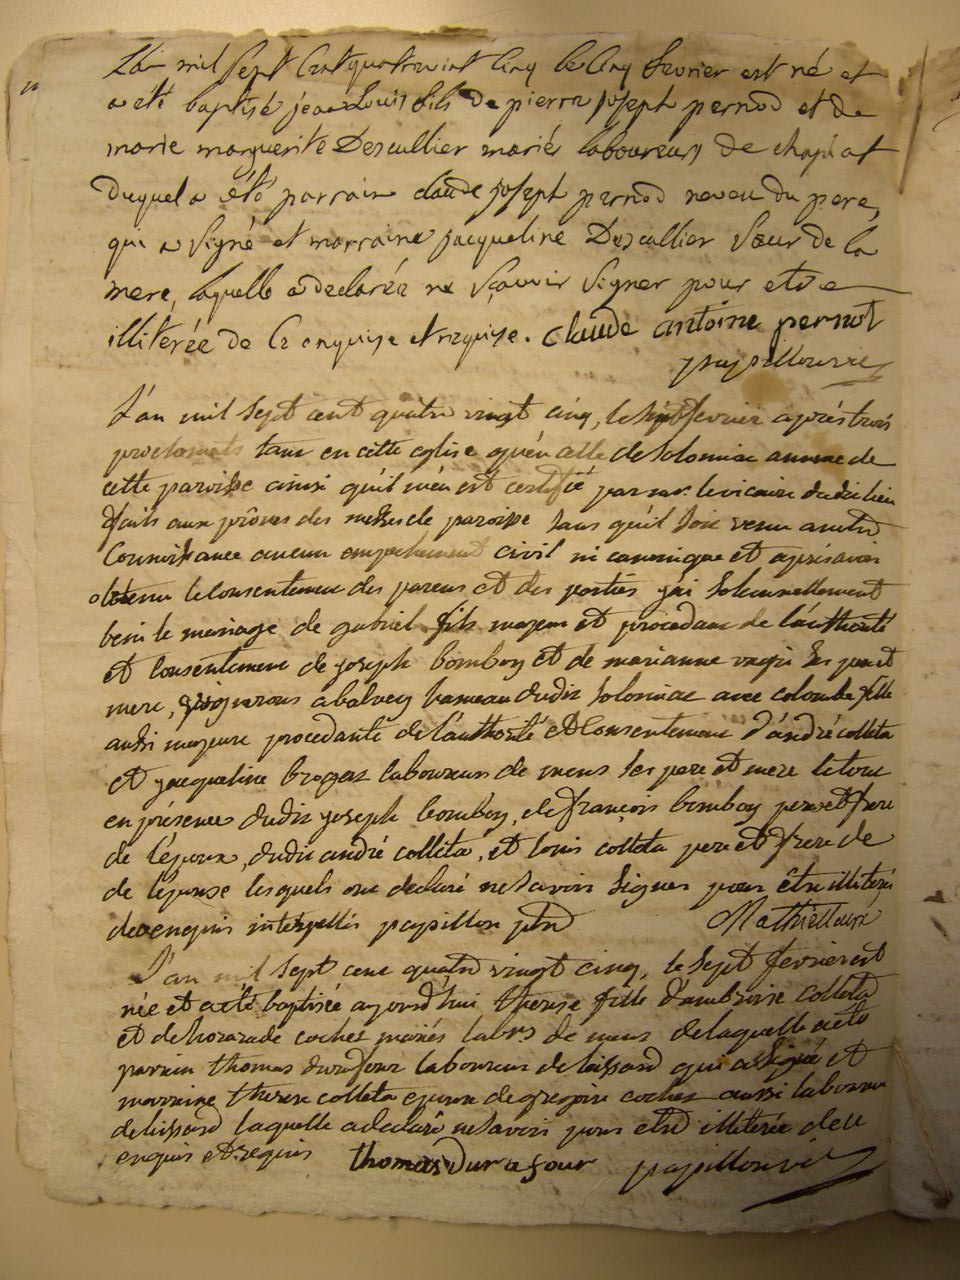 L'an mil sept cent quatrevint cinq le cinq fevrier est né et
a eté baptisé jean Louis fils de pierre joseph pernod et de
marie marguerite Descullier mariés laboureurs de chapiat
duquel a été parrain claude joseph pernod neveu du pere,
qui a signé et marraine jacqueline Descullier sœur de la
mere, laquelle a declarée ne sçavoir signer pour etre
illiterée de ce enquise et requise. claude antoine pernot
papillon vic
L'an mil sept cent quatre vingt cinq, le sept fevrier après trois
proclamats tant en cette eglise qu'en celle de solomiac annexe de
cette paroisse ainsi qu'il m'en est certifié par mr le vicaire dudit lieu
faits aux prônes des messes de paroisse sans qu'il soit venu a notre
Connoissance aucun empechement civil ni canonique et après avoir
obtenu le consentement des parens et des parties j'ai solemnellement
beni le mariage de gabriel fils majeur et procedant de l'authorité
et consentement de joseph bomboy et de marianne ses pere et
mere, vignerons a balvey hameau dudit solomiac avec colombe fille
aussi majeure procedante de l'authorité et Consentement d'andré colleta
et jacqueline brogat laboureurs de meus ses pere et mere le tout
en présence dudit joseph bomboy, de françois bomboy pere et frere
de l'époux, dudit andré colleta, et louis colleta pere et frere de
de l'épouse lesquels ont declaré ne savoir signer pour être illiterés
de ce enquis interpellés papillon ptre
L'an mil sept cent quatre vingt cinq, le sept fevrier est
née et a eté baptisée aujourd'hui therese fille d'ambroise colleta
et de cochet mariés labrs de meus de laquelle a eté
parrain thomas durafour laboureur de lissard qui a signé et
marraine therese colleta epouse de gregoire cochet aussi laboureur
de lissard laquelle a declaré ne savoir pour etre illiterée de ce
enquis et requis thomas Durafour papillon vic